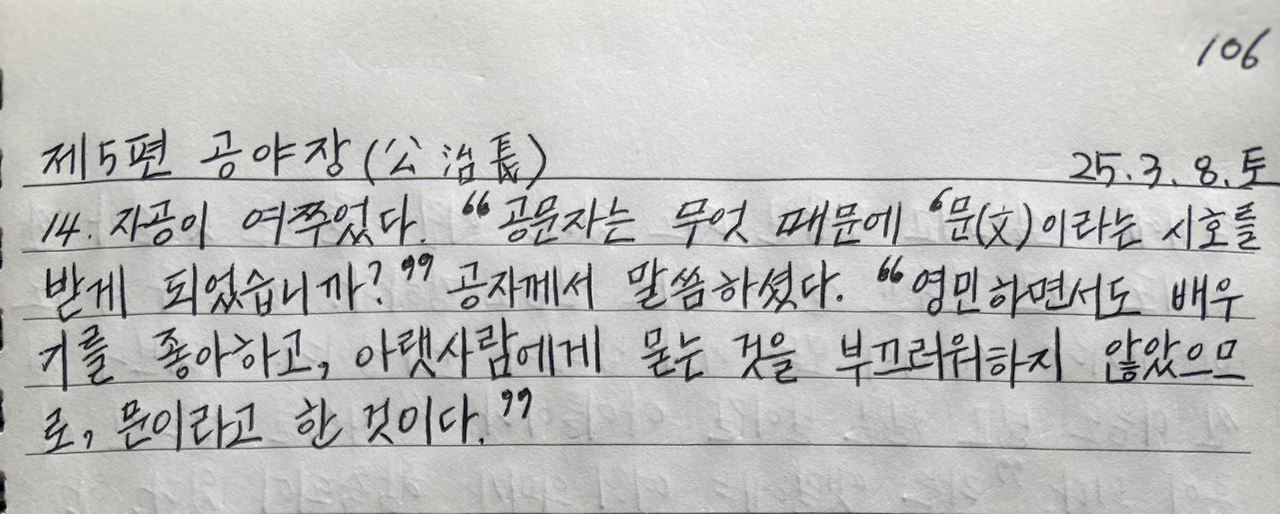 106
제5편 공야장(公治長)
25.3.8.토
14. 자공이 여쭈었다. “공문자는 무엇 때문에 ‘문(文)이라는 시호를
받게 되었습니까?” 공자께서 말씀하셨다. “영민하면서도 배우
기를 좋아하고, 아랫사람에게 묻는 것을 부끄러워하지 않았으므
로, 문이라고 한 것이다.”